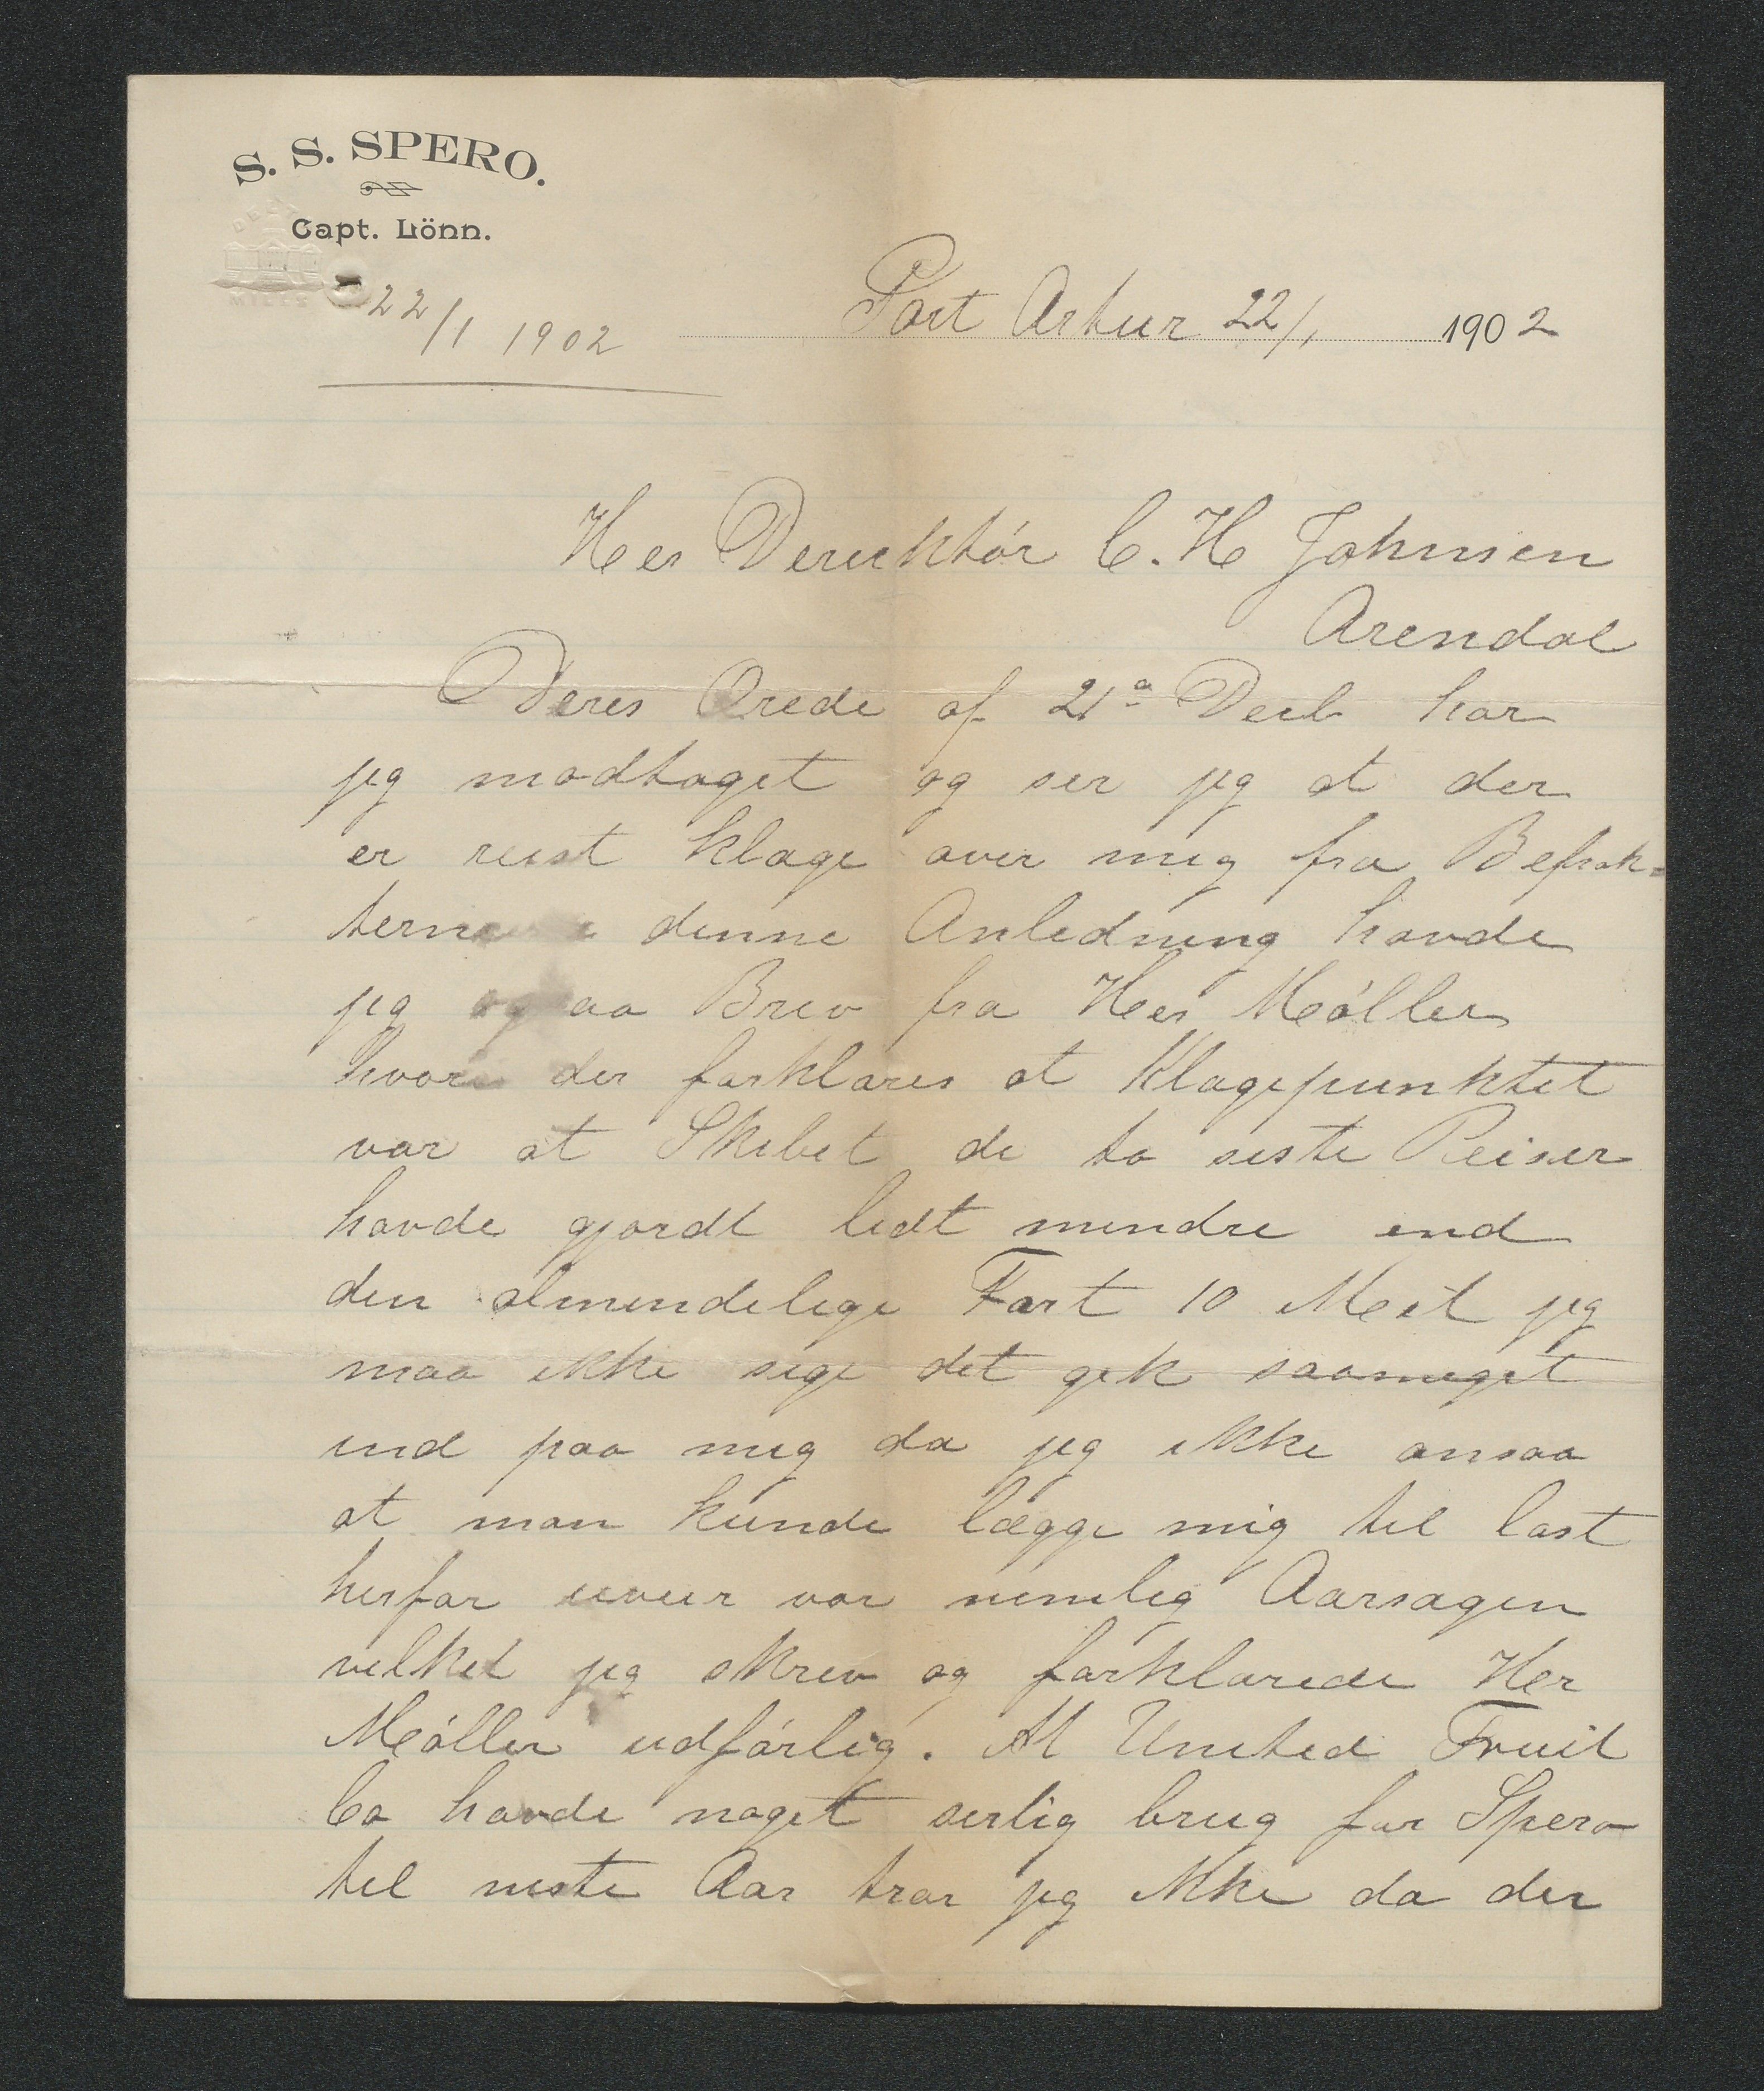 S. S. SPERO.
Capt. Lönn.
22/1 1902
Port Artur 22/1 1902
Her Derecktör C. H Johnsen
Arendal
Deres Ærede af 21de Decb har
jeg modtaget og ser jeg at der
er reist klage over mig fra Befrak=
terne denne Anledning havde
jeg ogsaa Brev fra Her Möller
hvori der forklares at Klagepunktet
var at Skibet de to siste Reiser
havde gjordt lidt mindre end
den almindelige Fart 10 Meil jeg
maa ikke sige det gik saameget
ind paa mig da jeg ikke ansaa
at man kunde lægge mig til last
herfor uveir var nemlig Aarsagen
vilket jeg skrev og forklarede Her
Möller udförlig. At United Fruit
Co havde noget serlig brug for Spero
til neste Aar tror jeg ikke da der